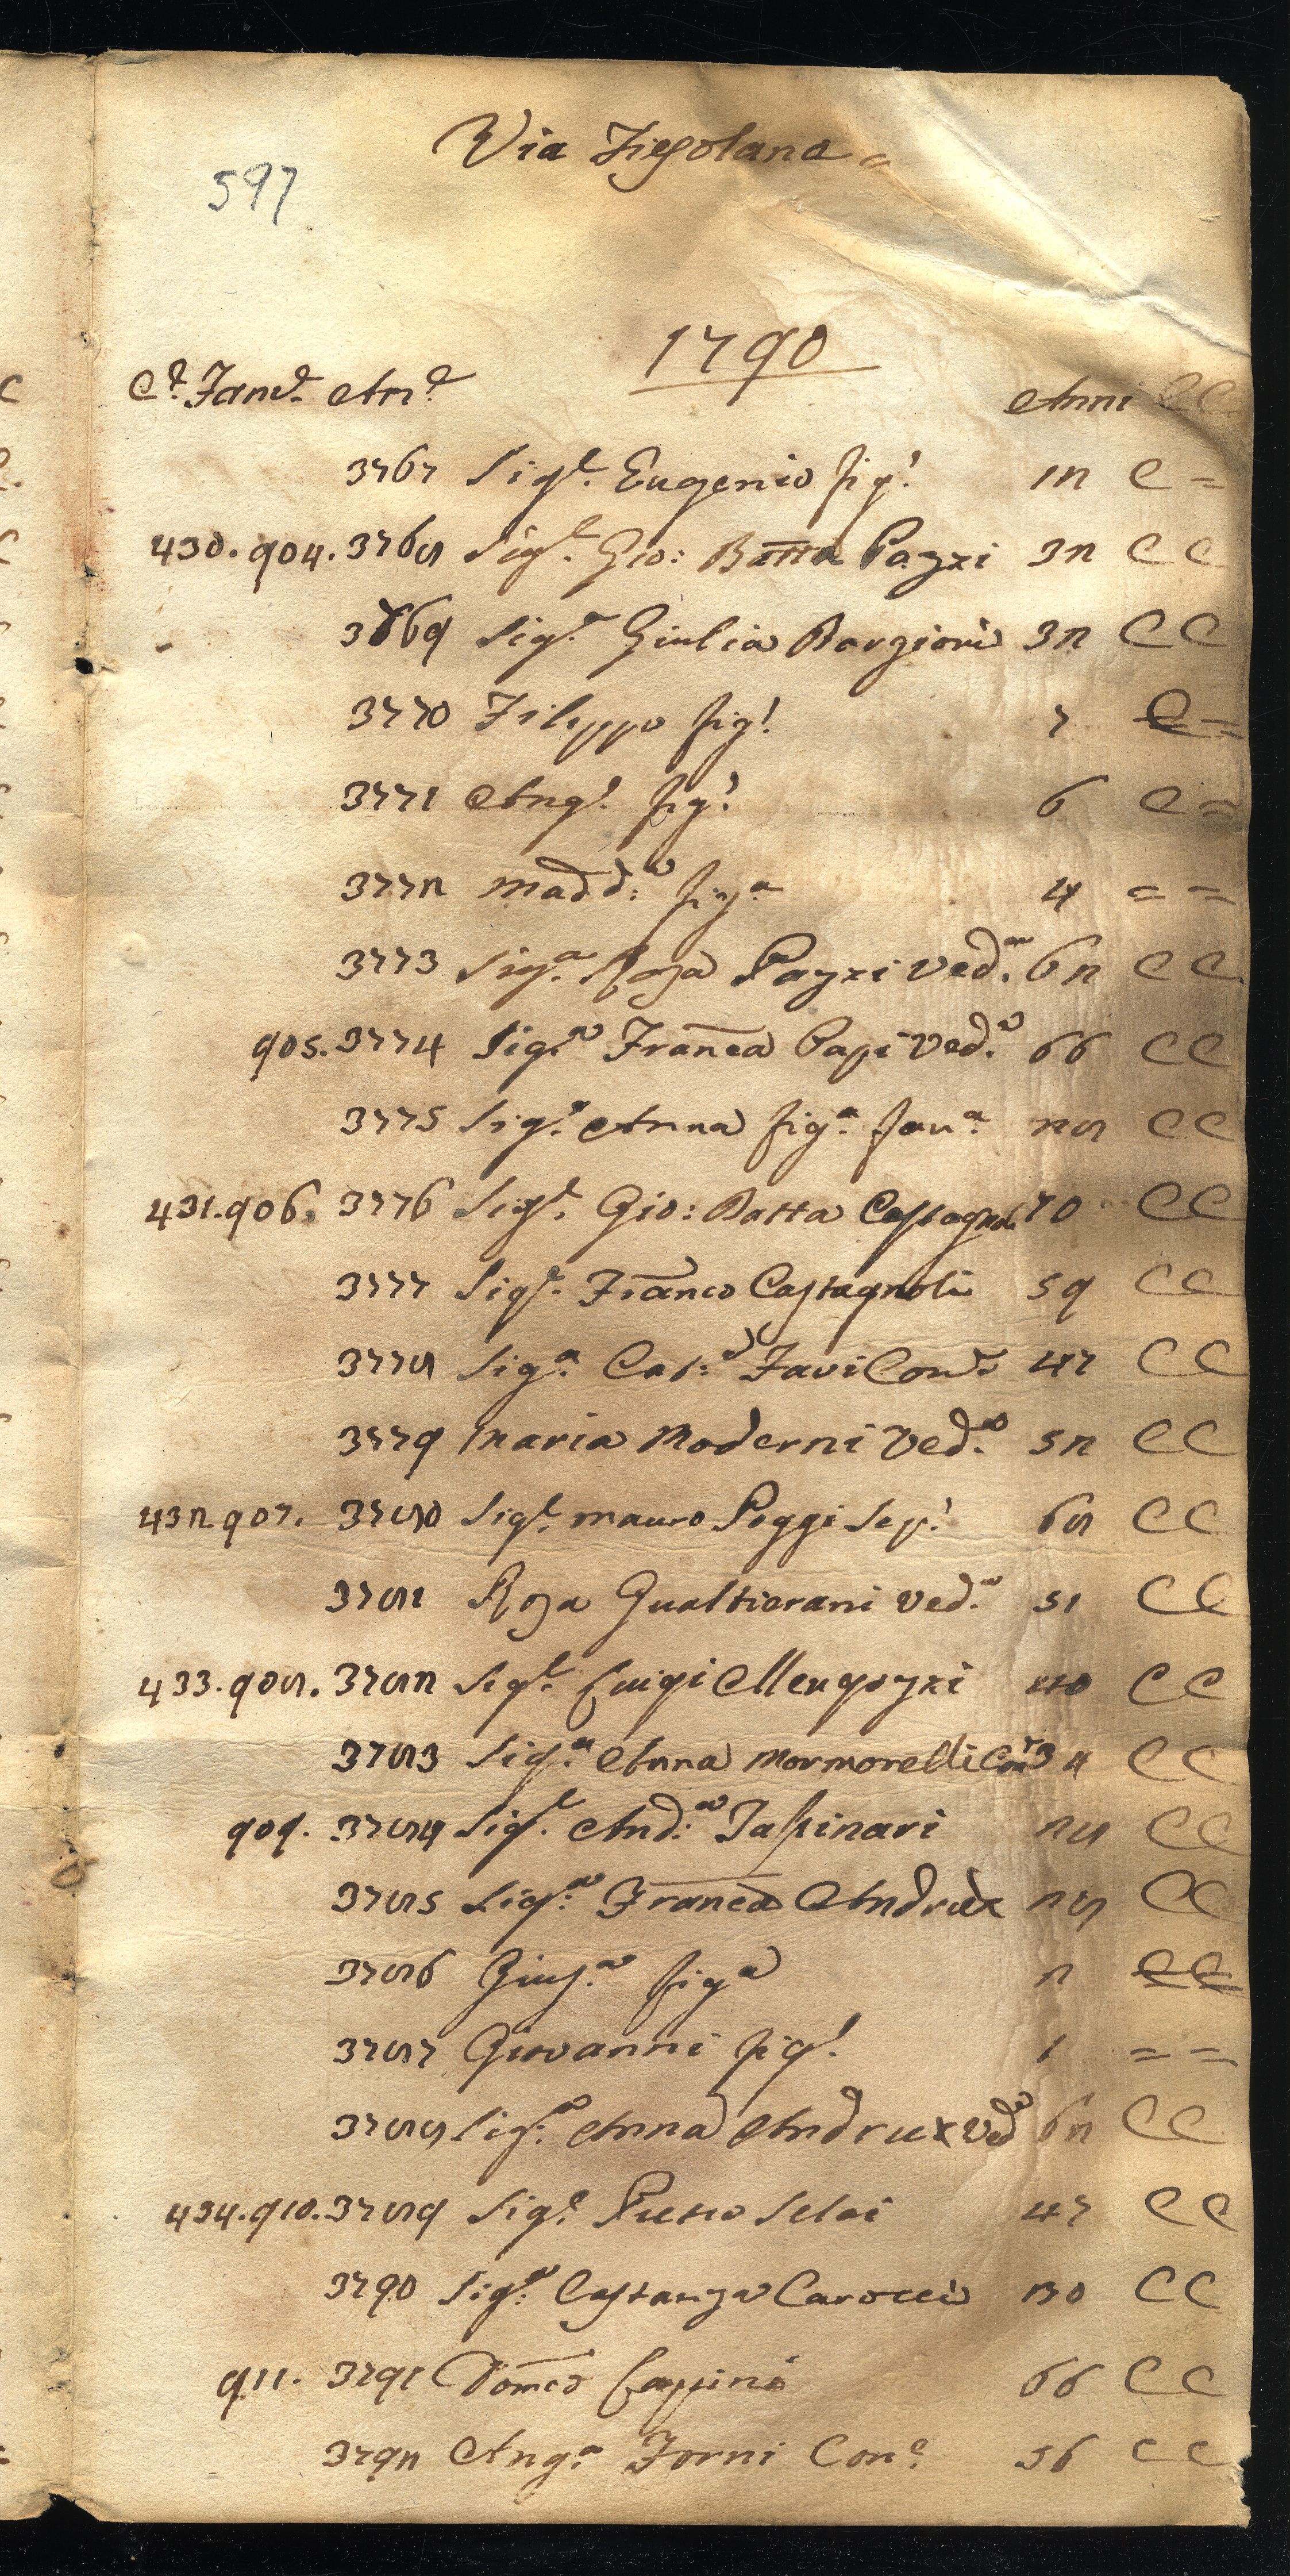 Via Fiesolana =
597
1790
Cᵉ. Famᵉ. Anᵉ Anni C C
3767 Sigʳ. Eugenio figˡ. 12 C =
430. 904. 3768 Sigʳ. Gio: Batta Pazzi 32 C C
3769 Sigʳᵃ Giulia Borgioni 32 C C
3770 Filippo figˡ. 7 C =
3771 Angˡ. figˡ. 6 C =
3772 Madd:ᵃ figᵃ 4 = =
3773 Sigʳᵃ Rosa Pazzi Vedᵃ. 62 C C
905. 3774 Sigʳᵃ Franca Papi Vedᵃ. 66 C C
3775 Sigʳᵃ Anna figᵃ fanᵃ 28 C C
431. 906. 3776 Sigʳ. Gio: Batta Castagnoli 70 C C
3777 Sigʳ. Franco Castagnoli 59 C C
3778 Sigʳᵃ Cat:ᵃ Favi Conᵉ 47 C C
3779 Maria Moderni Vedᵃ. 52 C C
432. 907. 3780 Sigʳ. Mauro Poggi Sepˡ. 68 C C
3781 Rosa Gualtierani Vedᵃ. 51 C C
433. 908. 3782 Sigʳ. Luigi Mengozzi 40 C C
3783 Sigʳᵃ Anna Mormorelli Conᵉ 34 C C
909. 3784 Sigʳ. And:ᵃ Taspinari 28 C C
3785 Sigʳᵃ Franca Andrux 28 C C
3786 Giusᵃ figᵃ 2 C C
3787 Giovanni figˡ. 1 = =
3788 Sigʳᵃ Anna Andrux Vedᵃ 62 C C
434. 910. 3789 Sigʳ. Pietro Selai 47 C C
3790 Sigʳᵃ Costanza Carocci 30 C C
911. 3791 Domco Lappini 66 C C
3792 Angᵃ Forni Conᵉ 56 C C